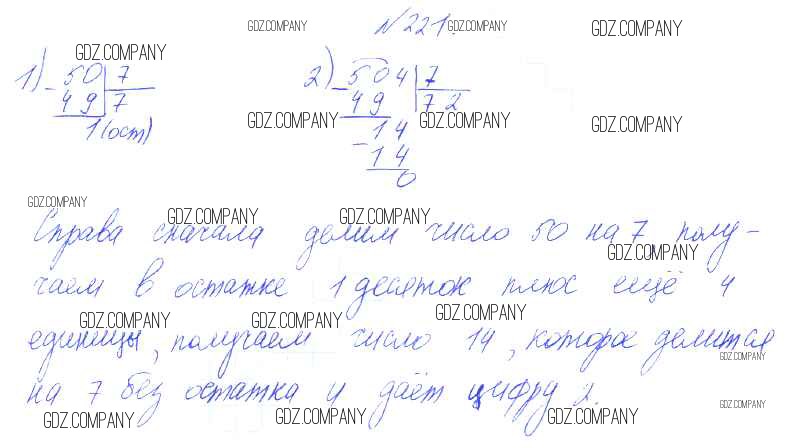 № 221.
GDZ.COMPANY GDZ.COMPANY GDZ.COMPANY
GDZ.COMPANY
1) 50 7 2) 504 7
- 49 7 - 49 72
1 (ост) 14
GDZ.COMPANY GDZ.COMPANY GDZ.COMPANY
- 14
0
GDZ.COMPANY
GDZ.COMPANY GDZ.COMPANY
Справа сначала делим число 50 на 7, полу-
GDZ.COMPANY
чаем в остатке 1 десяток плюс ещё 4
GDZ.COMPANY GDZ.COMPANY GDZ.COMPANY
единицы, получаем число 14, которое делится
GDZ.COMPANY
на 7 без остатка и даёт цифру 2.
GDZ.COMPANY GDZ.COMPANY GDZ.COMPANY GDZ.COMPANY